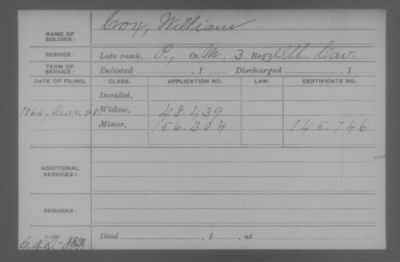 NAME OF SOLDIER: Cox, William
SERVICE: Late rank, P., Co. M, 3 Reg't Ill. Cav.
TERM OF SERVICE: Enlisted , 1 Discharged , 1
DATE OF FILING. CLASS. APPLICATION NO. LAW. CERTIFICATE NO.
Invalid,
1864, Mar. 28. Widow, 48.439
Minor, 156.304 145.746
ADDITIONAL SERVICES:
REMARKS:
Died , 1 , at